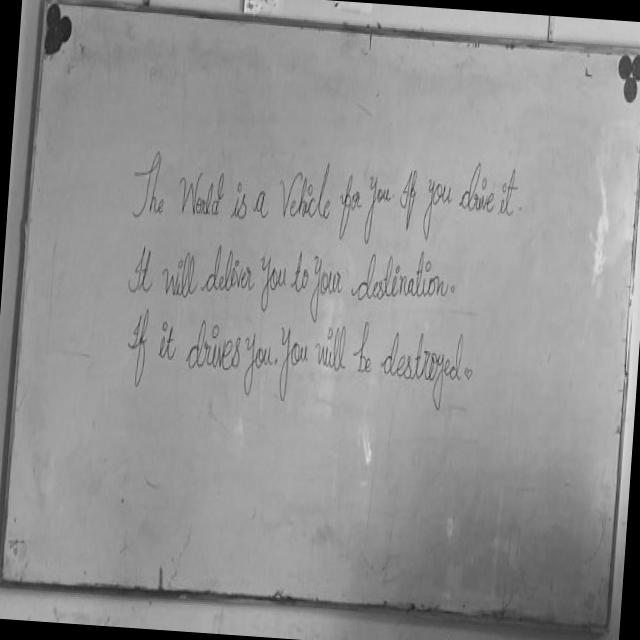 The World is a Vehicle for you If you drive it.
It will deliver you to your destination.
If it drives you. you will be destroyed.